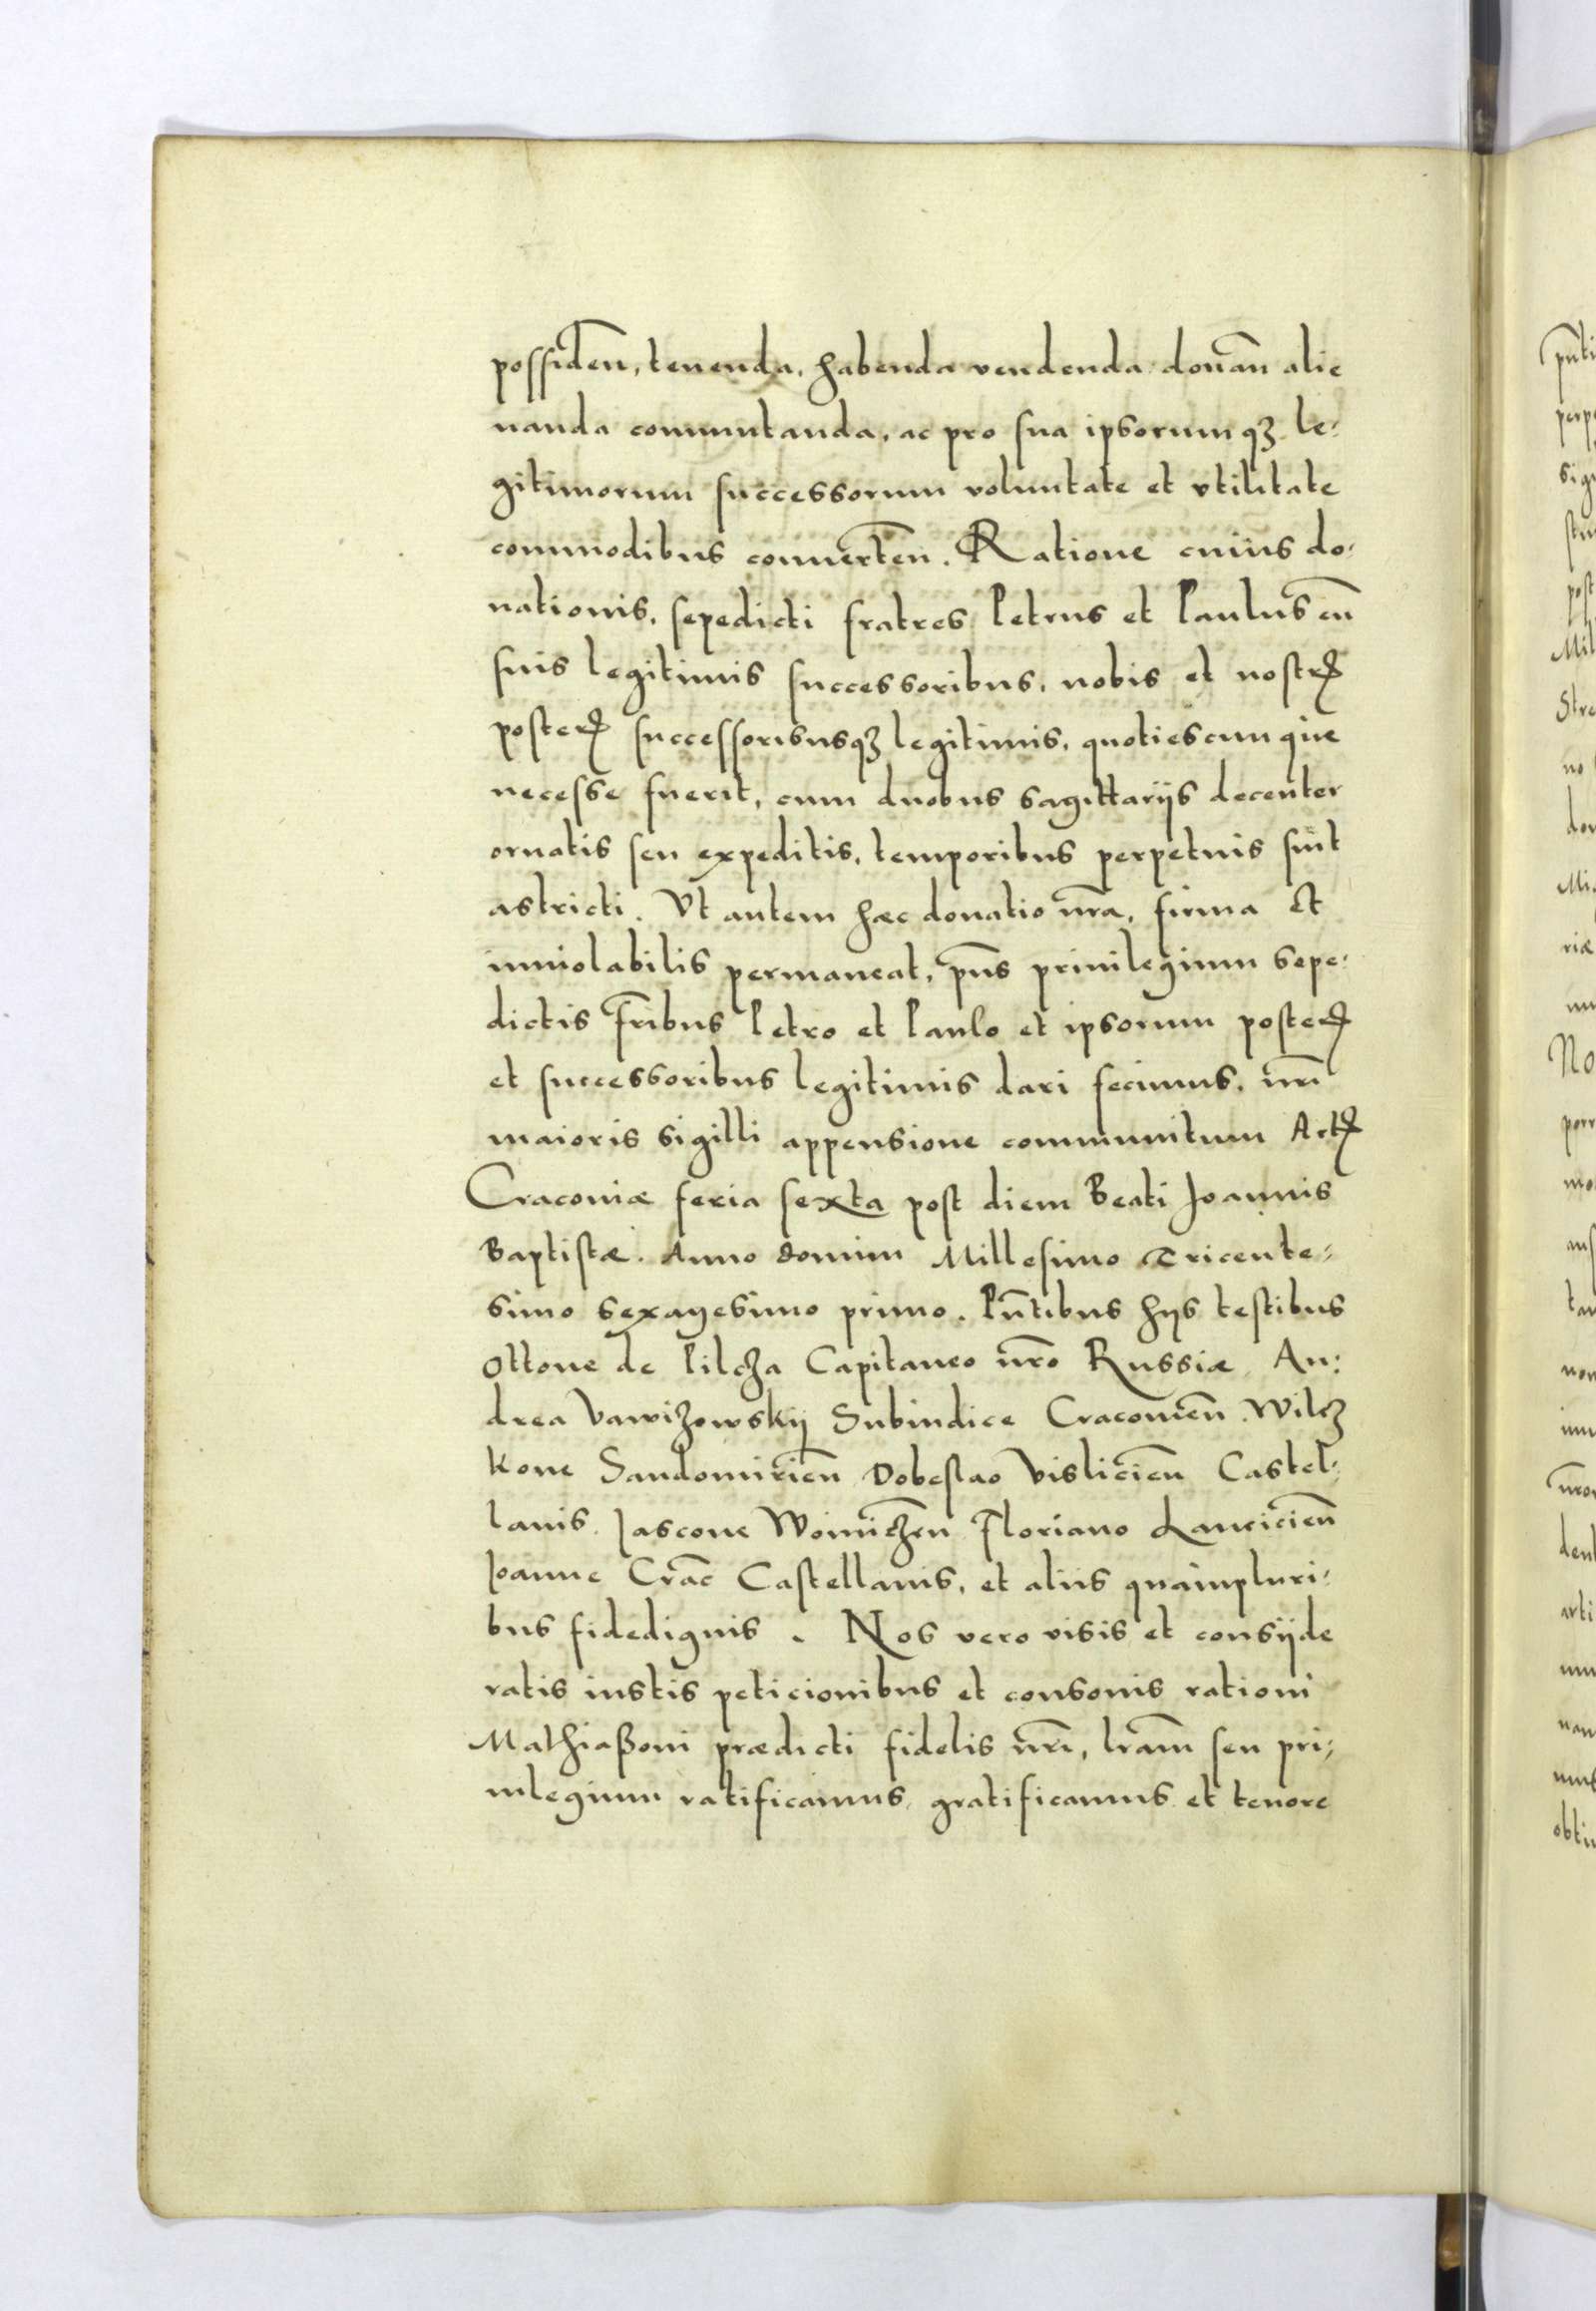 possideñ, tenenda, habenda vendenda donañ alie
nanda commutanda, ac pro sua ipsorumqꝫ le:
gitimorum successorum voluntate et vtilitate
commodibus conuerteñ. Ratione cuius do:
nationis, sepedicti fratres Petrus et Paulus cū
suis legitimis successoribus, nobis et nostrꝭ
posterꝭ successoribusqꝫ legitimis, quotiescunque
necesse fuerit, cum duobus sagittarijs decenter
ornatis seu expeditis, temporibus perpetuis sint
astricti. Vt autem hæc donatio nr̄a, firma et
inuiolabilis permaneat, pn̄s priuilegium sepe:
dictis fr̄ibus Petro et Paulo et ipsorum posterꝭ
et successoribus legitimis dari fecimus, nr̄i
maioris sigilli appensione communitum Actꝭ
Cracouiæ feria sexta post diem Beati Joannis
Baptistæ. Anno domini Millesimo Tricente:
simo sexagesimo primo. Pn̄tibus hijs testibus
Ottone de Pilcza Capitaneo nr̄o Russiæ An:
drea Vawizowskij Subiudice Cracouieñ. Wilcz
kone Sandomirieñ Dobeslao Vislicieñ Castel:
lanis. Jascone Woiniczeñ Floriano Lancicieñ
Joanne Crac̄ Castellanis, et aliis quampluri:
bus fidedignis. Nos vero visis et consijde
ratis iustis peticionibus et consonis rationi
Mathiaßoni prædicti fidelis nr̄i, lr̄am seu pri:
uilegium ratificamus, gratificamus et tenore